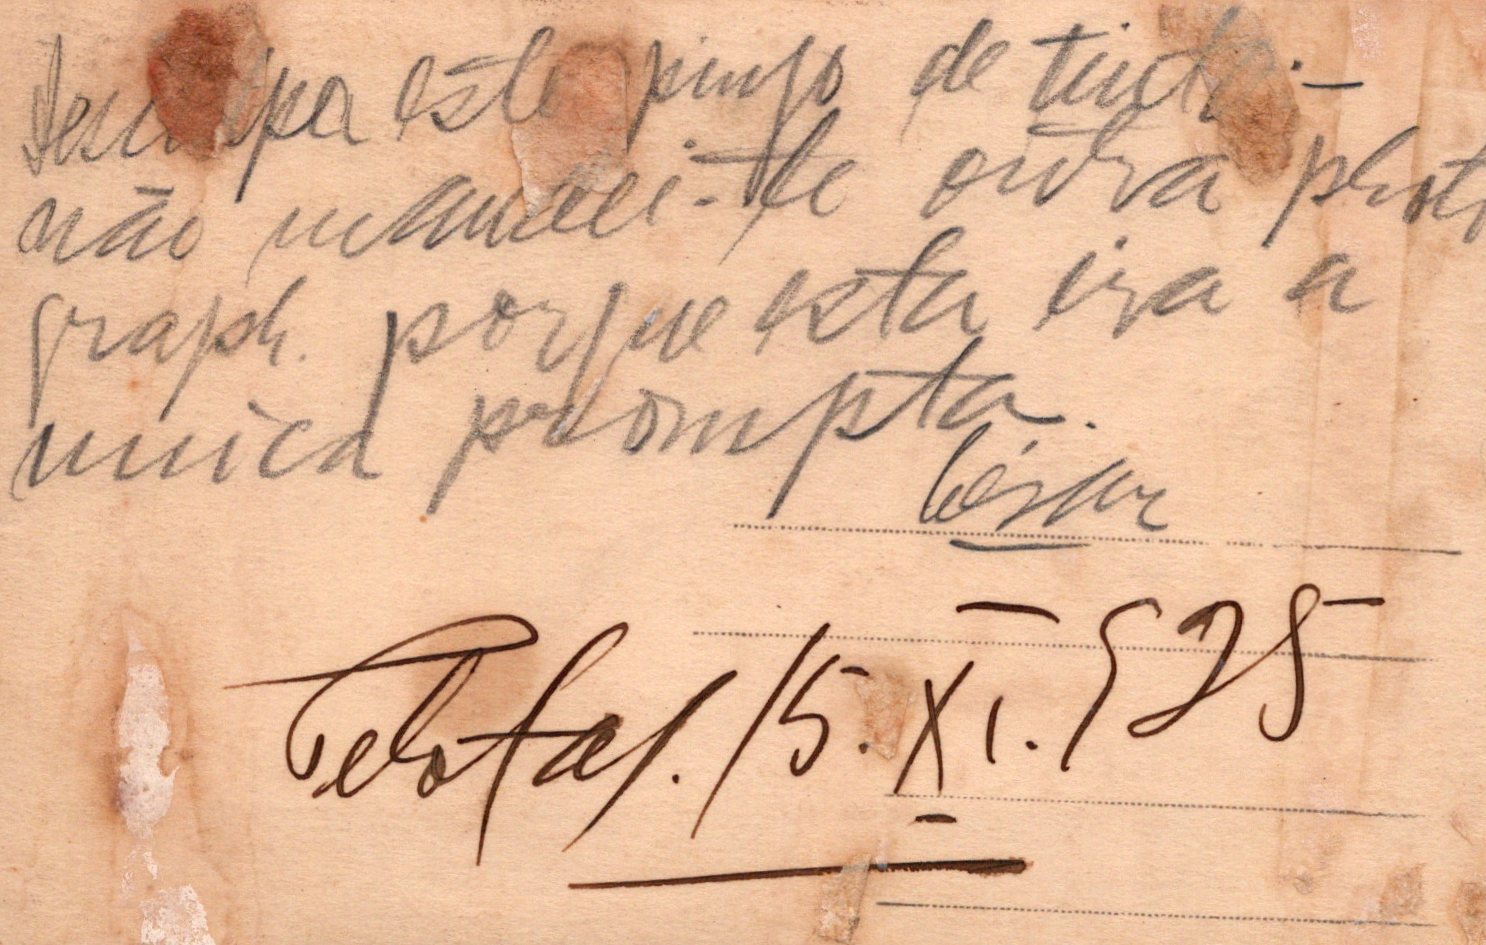 Desculpa este pingo de tinta. -
não mandei-te outra photo
graph. porque esta ira a
unica prompta.
César
Pelotas. 15. XI. 925